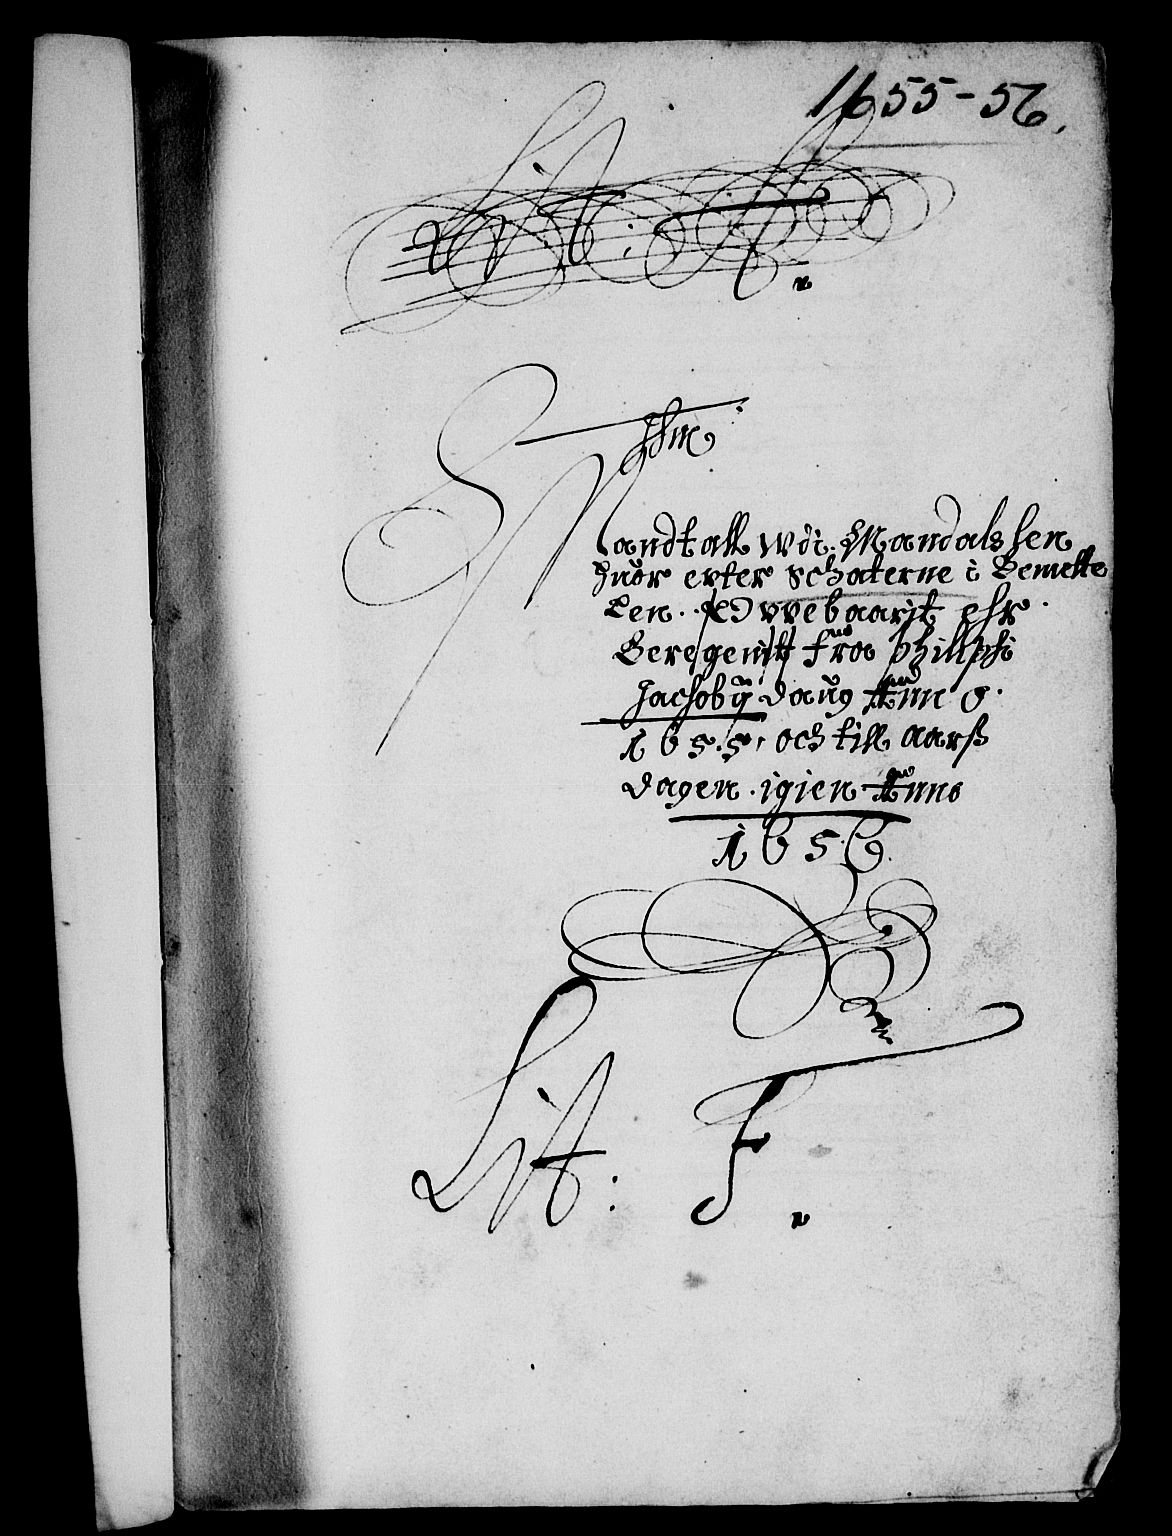 1655-56.
Lit:
Mandtall wdi Mandals Len
huor epter Schatterne i Bemelte
Len Beregenitt fra Philippi
Jachobij daug Anno
1655, och till aarß
dagen igien Anno
1656
Lit: F.